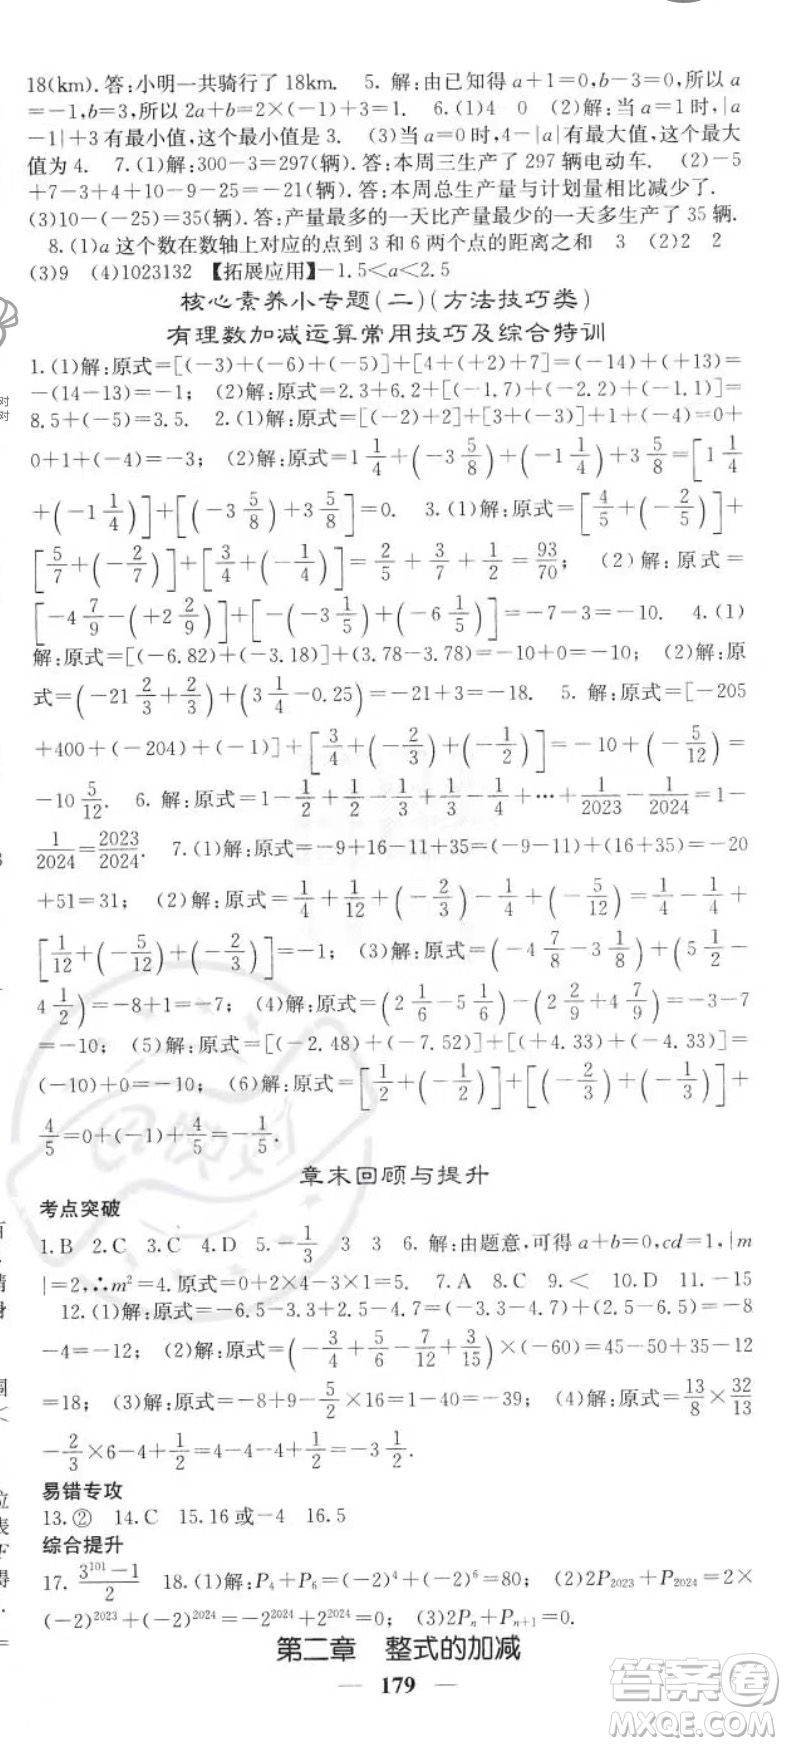 18(km). 答:小明一共骑行了 18km. 5. 解:由已知得 a+1=0,b-3=0,所以 a
=-1,b=3,所以 2a+b=2×(-1)+3=1. 6.(1)4 0 (2)解:当 a=1 时,|a
-1|+3 有最小值,这个最小值是 3. (3)当 a=0 时,4-|a|有最大值,这个最大
值为 4. 7.(1)解:300-3=297(辆). 答:本周三生产了 297 辆电动车. (2)-5
+7-3+4+10-9-25=-21(辆). 答:本周总生产量与计划量相比减少了.
(3)10-(-25)=35(辆). 答:产量最多的一天比产量最少的一天多生产了 35 辆.
8.(1)a 这个数在数轴上对应的点到 3 和 6 两个点的距离之和 3 (2)2 2
(3)9 (4)1023132 【拓展应用】-1.5<a<2.5
核心素养小专题(二)(方法技巧类)
有理数加减运算常用技巧及综合特训
1.(1)解:原式=[(-3)+(-6)+(-5)]+[4+(+2)+7]=(-14)+(+13)=
-(14-13)=-1; (2)解:原式=2.3+6.2+[(-1.7)+(-2.2)+(-1.1)]=
8.5+(-5)=3.5. 2.(1)解:原式=[(-2)+2]+[3+(-3)]+1+(-4)=0+
0+1+(-4)=-3; (2)解:原式=1 1/4+(-3 5/8)+(-1 1/4)+3 5/8=[1 1/4
+(-1 1/4)]+[(-3 5/8)+3 5/8]=0. 3.(1)解:原式=[4/5+(-2/5)]+
[5/7+(-2/7)]+[3/4+(-1/4)]=2/5+3/7+1/2=93/70; (2)解:原式=
[-4 7/9-(+2 2/9)]+[-(-3 1/5)+(-6 1/5)]=-7-3=-10. 4.(1)
解:原式=[(-6.82)+(-3.18)]+(3.78-3.78)=-10+0=-10; (2)解:原
式=(-21 2/3+2/3)+(3 1/4-0.25)=-21+3=-18. 5. 解:原式=[-205
+400+(-204)+(-1)]+[3/4+(-2/3)+(-1/2)]=-10+(-5/12)=
-10 5/12. 6. 解:原式=1-1/2+1/2-1/3+1/3-1/4+…+1/2023-1/2024=1-
1/2024=2023/2024. 7.(1)解:原式=-9+16-11+35=(-9-11)+(16+35)=-20
+51=31; (2)解:原式=1/4+1/12+(-2/3)+1/4+(-5/12)=1/4+1/4+
[1/12+(-5/12)+(-2/3)]=-1; (3)解:原式=(-4 7/8-3 1/8)+(5 1/2-
4 1/2)=-8+1=-7; (4)解:原式=(2 1/6-5 1/6)-(2 2/9+4 7/9)=-3-7
=-10; (5)解:原式=[(-2.48)+(-7.52)]+[(+4.33)+(-4.33)]=
(-10)+0=-10; (6)解:原式=[1/2+(-1/2)]+[(-2/3)+(-1/3)]+
4/5=0+(-1)+4/5=-1/5.
章末回顾与提升
考点突破
1. B 2. C 3. C 4. D 5. -1/3 3 3 6. 解:由题意,可得 a+b=0,cd=1,|m
|=2,∴m²=4. 原式=0+2×4-3×1=5. 7. A 8. C 9. < 10. D 11. -15
12.(1)解:原式=-6.5-3.3+2.5-4.7=(-3.3-4.7)+(2.5-6.5)=-8
-4=-12; (2)解:原式=(-3/4+5/6-7/12+3/15)×(-60)=45-50+35-12
=18; (3)解:原式=-8+9-5/2×16=1-40=-39; (4)解:原式=13/8×32/13
-2/3×6-4+1/2=4-4-4+1/2=-3 1/2.
易错专攻
13. ② 14. C 15. 16 或-4 16. 5
综合提升
17. (3¹⁰¹-1)/2 18.(1)解:P₄+P₆=(-2)⁴+(-2)⁶=80; (2)2P₂₀₂₃+P₂₀₂₄=2×
(-2)²⁰²³+(-2)²⁰²⁴=-2²⁰²⁴+2²⁰²⁴=0; (3)2Pₙ+Pₙ₊₁=0.
第二章 整式的加减
— 179 —
答案卷
MXQE.COM